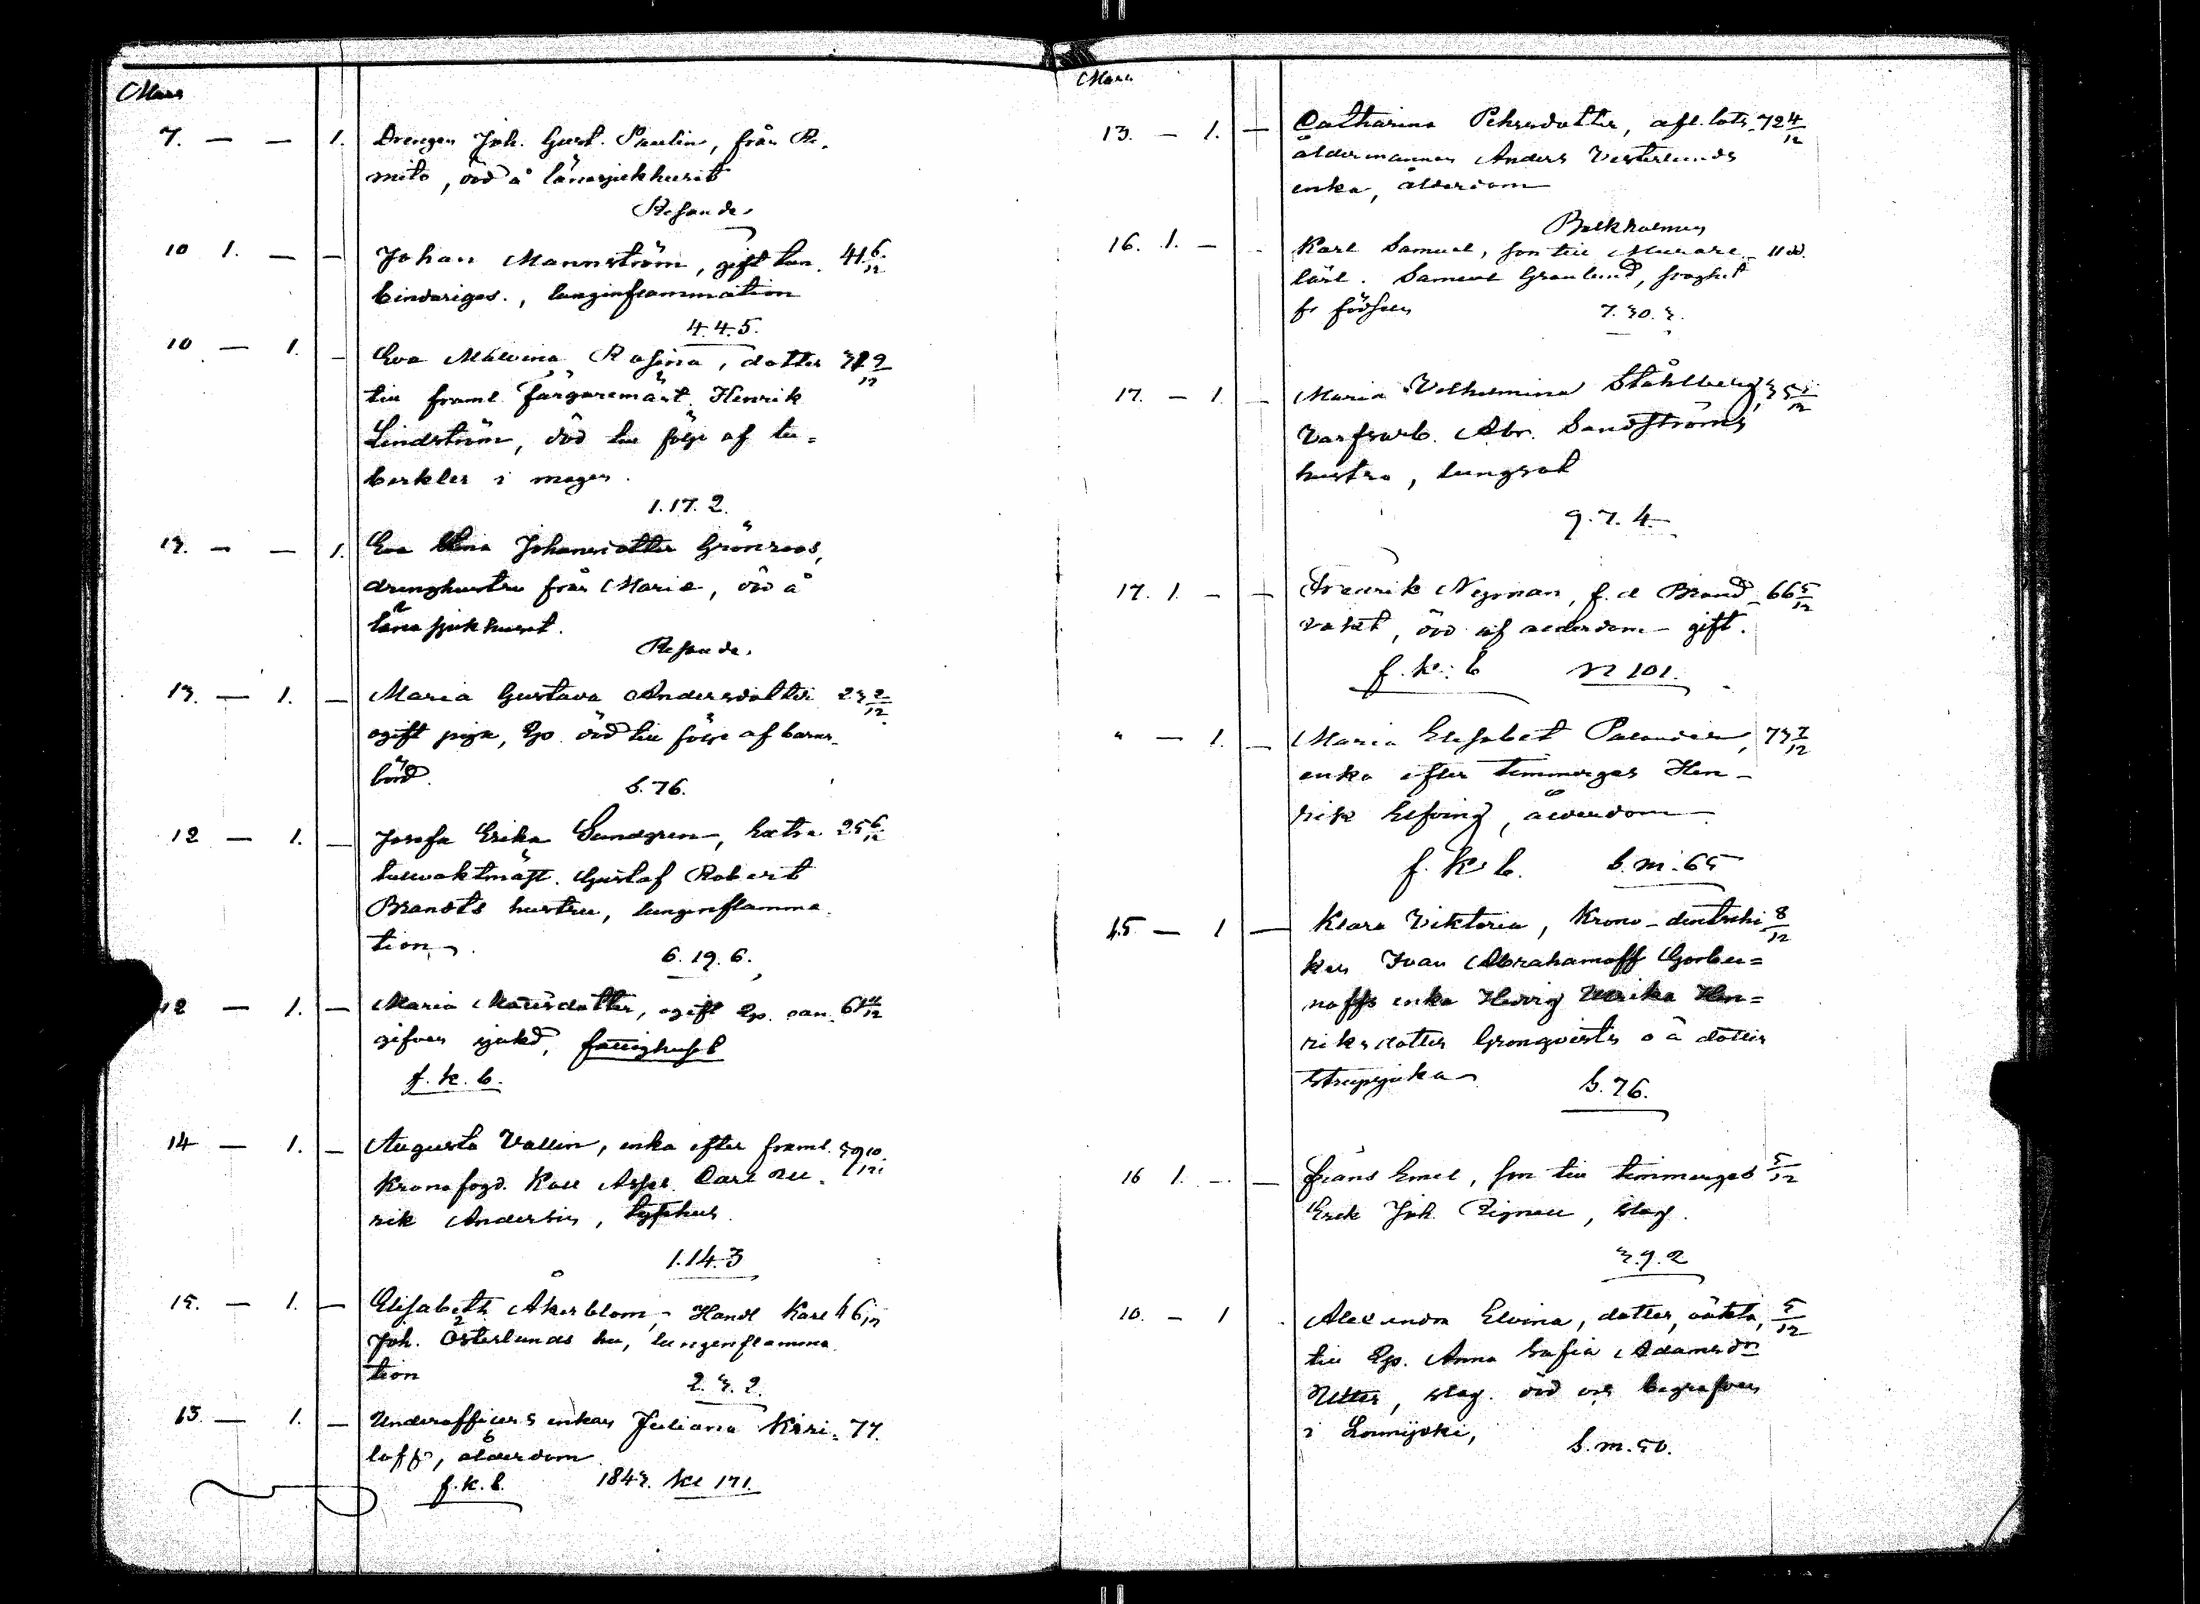 Mars
7. — — 1. Drengen Joh. Gust. Paulin, från Ri-
mito, död å länesjukhuset
Resande.
10 1. — — Johan Mannström, gift tun- 41 6/12
bindariges., lunginflammation
4.4.5.
10 — 1. — Eva Malvina Rosina, dotter 9/12
till framl. färgaremäst. Henrik
Lindström, död till följe af tu=
berkler i magen.
1.17.2.
13. — — 1. Eva Johansdotter Grönroos,
drenghustru från Marie, död å
länssjukhuset.
Resande.
13. — 1. — Maria Gustava Andersdotter 23 2/12
ogift piga, Ep. död till följe af barns-
börd.
S. 76.
12 — 1. — Josefa Erika Sundgren, Extra 25 6/12
tullvaktmäst. Gustaf Robert
Brandts hustru, lunginflamma
tion.
6.19.6.
12 — 1. — Maria Matsdotter, ogift Ep. oan-
gifven sjukd, fattighuset
f.k.b.
14 — 1. — Augusta Vallin, enka efter framl. 39 10/12
Kronofogd. Koll Asses. Carl
rik Andersin, typhus.
1.14.3
15. — 1. — Elisabeth Åkerblom, Handl Karl 46/12
Joh. Österlunds hu, lunginflamma
tion
2.3.2.
13 — 1. — Underofficers enkan Juliana Kiri- 77.
loff, ålderdom
f.k.b. 1843. kl 171.
Mars
13. — 1. — Catharina Pehrsdotter, afl. lots- 72 4/12
åldermannen Anders Vesterlunds
enka, ålderdom
Beckholmen
16. 1. — Karl Samuel, son till Murare- 11 d.
lärl. Samuel Granlund, svaghet
fr födseln
7.30.3.
17. — 1. — Maria Vilhelmina Ståhlberg, 35 /12
Varfsarb. Abr. Sandströms
hustru, lungsot
9.7.4.
17. 1. — — Fredrik Nyman, f.d. Brand- 66 5/12
vakt, död af ålderdom — gift.
f.k.b N 101.
" — 1. — Maria Elisabet Palander, 73 7/12
enka efter timmerges Hen-
rik Elfving, ålderdom
f.k.b. S.m.65
15 — 1 — Klara Viktoria, Krono-dentschi 8/12
ken Ivan Abrahamoff Gorbu=
noffs enka Hedvig Ulrika Hen=
riksdotter Grönqvists o ä dotter
Strupsjuka
S.76.
16 1. — — Frans Emil, son till timmerges 5/12
Erik Joh. Rignell, slag.
3.9.2
10. — 1 Alexandra Elvina, dotter, oäkta, 5/12
till Ep. Anna Sofia Adamsdr
Utter, slag. död och begrafven
i Loimijoki,
S.m.50.